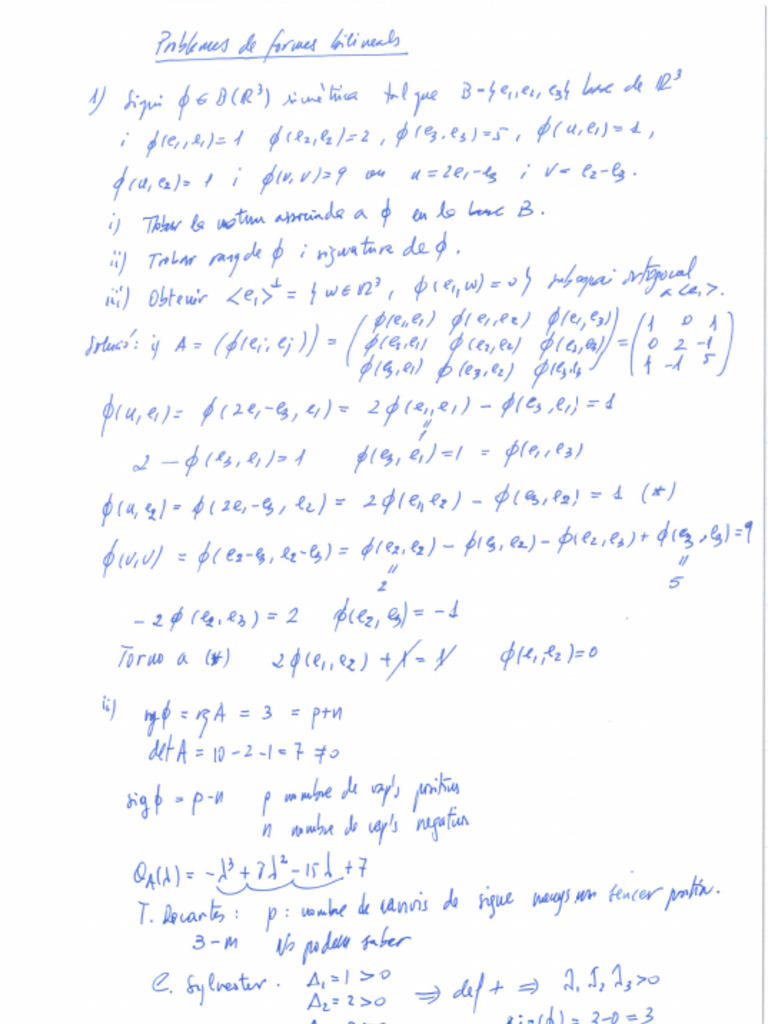 Problemes de formes bilineals
1) Sigui ϕ ∈ B(R³) simètrica tal que B={e₁,e₂,e₃} base de R³
i ϕ(e₁,e₁)=1 ϕ(e₂,e₂)=2, ϕ(e₃,e₃)=5, ϕ(u,e₁)=1,
ϕ(u,e₂)=1 i ϕ(v,v)=9 on u=2e₁-e₃ i v=e₂-e₃.
i) Trobar la matriu associada a ϕ en la base B.
ii) Trobar rang de ϕ i signatura de ϕ.
iii) Obtenir <e₁>^⊥ = {w∈R³, ϕ(e₁,w)=0} subespai ortogonal a <e₁>.
Solució: i) A = (ϕ(eᵢ,eⱼ)) = (ϕ(e₁,e₁) ϕ(e₁,e₂) ϕ(e₁,e₃) = (1 0 1
ϕ(e₂,e₁) ϕ(e₂,e₂) ϕ(e₂,e₃) 0 2 -1
ϕ(e₃,e₁) ϕ(e₃,e₂) ϕ(e₃,e₃)) 1 -1 5)
ϕ(u,e₁)= ϕ(2e₁-e₃,e₁)= 2ϕ(e₁,e₁) - ϕ(e₃,e₁)=1
" 1
2 - ϕ(e₃,e₁)=1 ϕ(e₃,e₁)=1 = ϕ(e₁,e₃)
ϕ(u,e₂)= ϕ(2e₁-e₃,e₂)= 2ϕ(e₁,e₂) - ϕ(e₃,e₂)=1 (*)
ϕ(v,v) = ϕ(e₂-e₃,e₂-e₃)= ϕ(e₂,e₂) - ϕ(e₃,e₂) - ϕ(e₂,e₃) + ϕ(e₃,e₃)=9
" 2 " 5
-2ϕ(e₂,e₃)=2 ϕ(e₂,e₃)=-1
Torno a (*) 2ϕ(e₁,e₂) + 1 = 1 ϕ(e₁,e₂)=0
ii) rgϕ = rgA = 3 = p+n
det A = 10-2-1=7 ≠0
sigϕ = p-n p nombre de vap's positius
n nombre de vap's negatius
Q_A(λ) = -λ³+8λ²-15λ+7
T. Descartes: p: nombre de canvis de signe menys un sencer positiu.
3-m No podem saber
C. Sylvester. Δ₁=1>0
Δ₂=2>0 ⇒ def + ⇒ λ₁ λ₂ λ₃>0
sig(ϕ) = 3-0=3